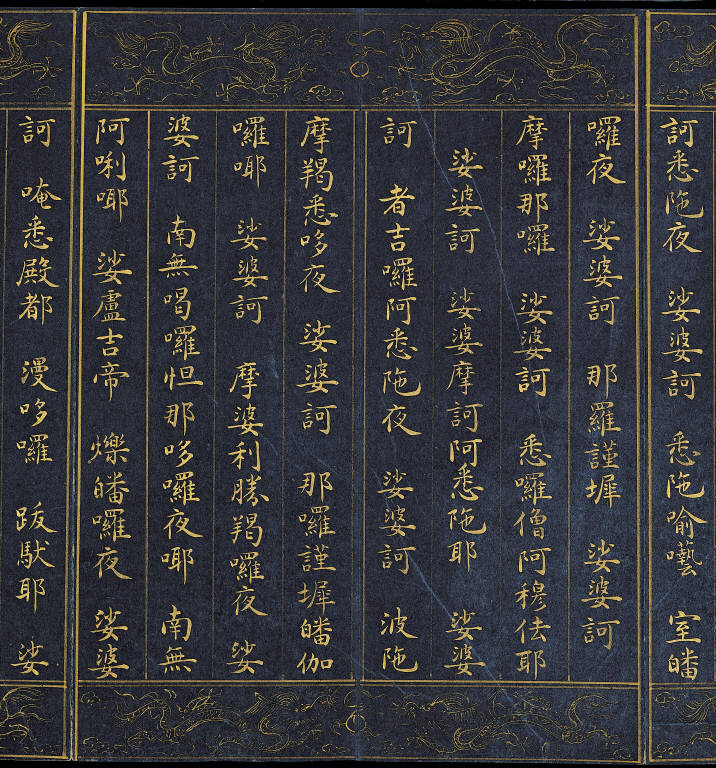 訶悉陁夜 娑婆訶 悉陁喻囈 室皤
囉夜 娑婆訶 那羅謹墀 娑婆訶
摩囉那囉 娑婆訶 悉囉僧阿穆佉耶
娑婆訶 娑婆摩訶阿悉陁耶 娑婆
訶 者吉囉阿悉陁夜 娑婆訶 波陁
摩羯悉哆夜 娑婆訶 那囉謹墀皤伽
囉哪 娑婆訶 摩婆利勝羯囉夜 娑
婆訶 南無喝囉怛那哆囉夜哪 南無
阿唎哪 娑盧吉帝 爍皤囉夜 娑婆
訶 唵悉殿都 漫哆囉 跋馱耶 娑